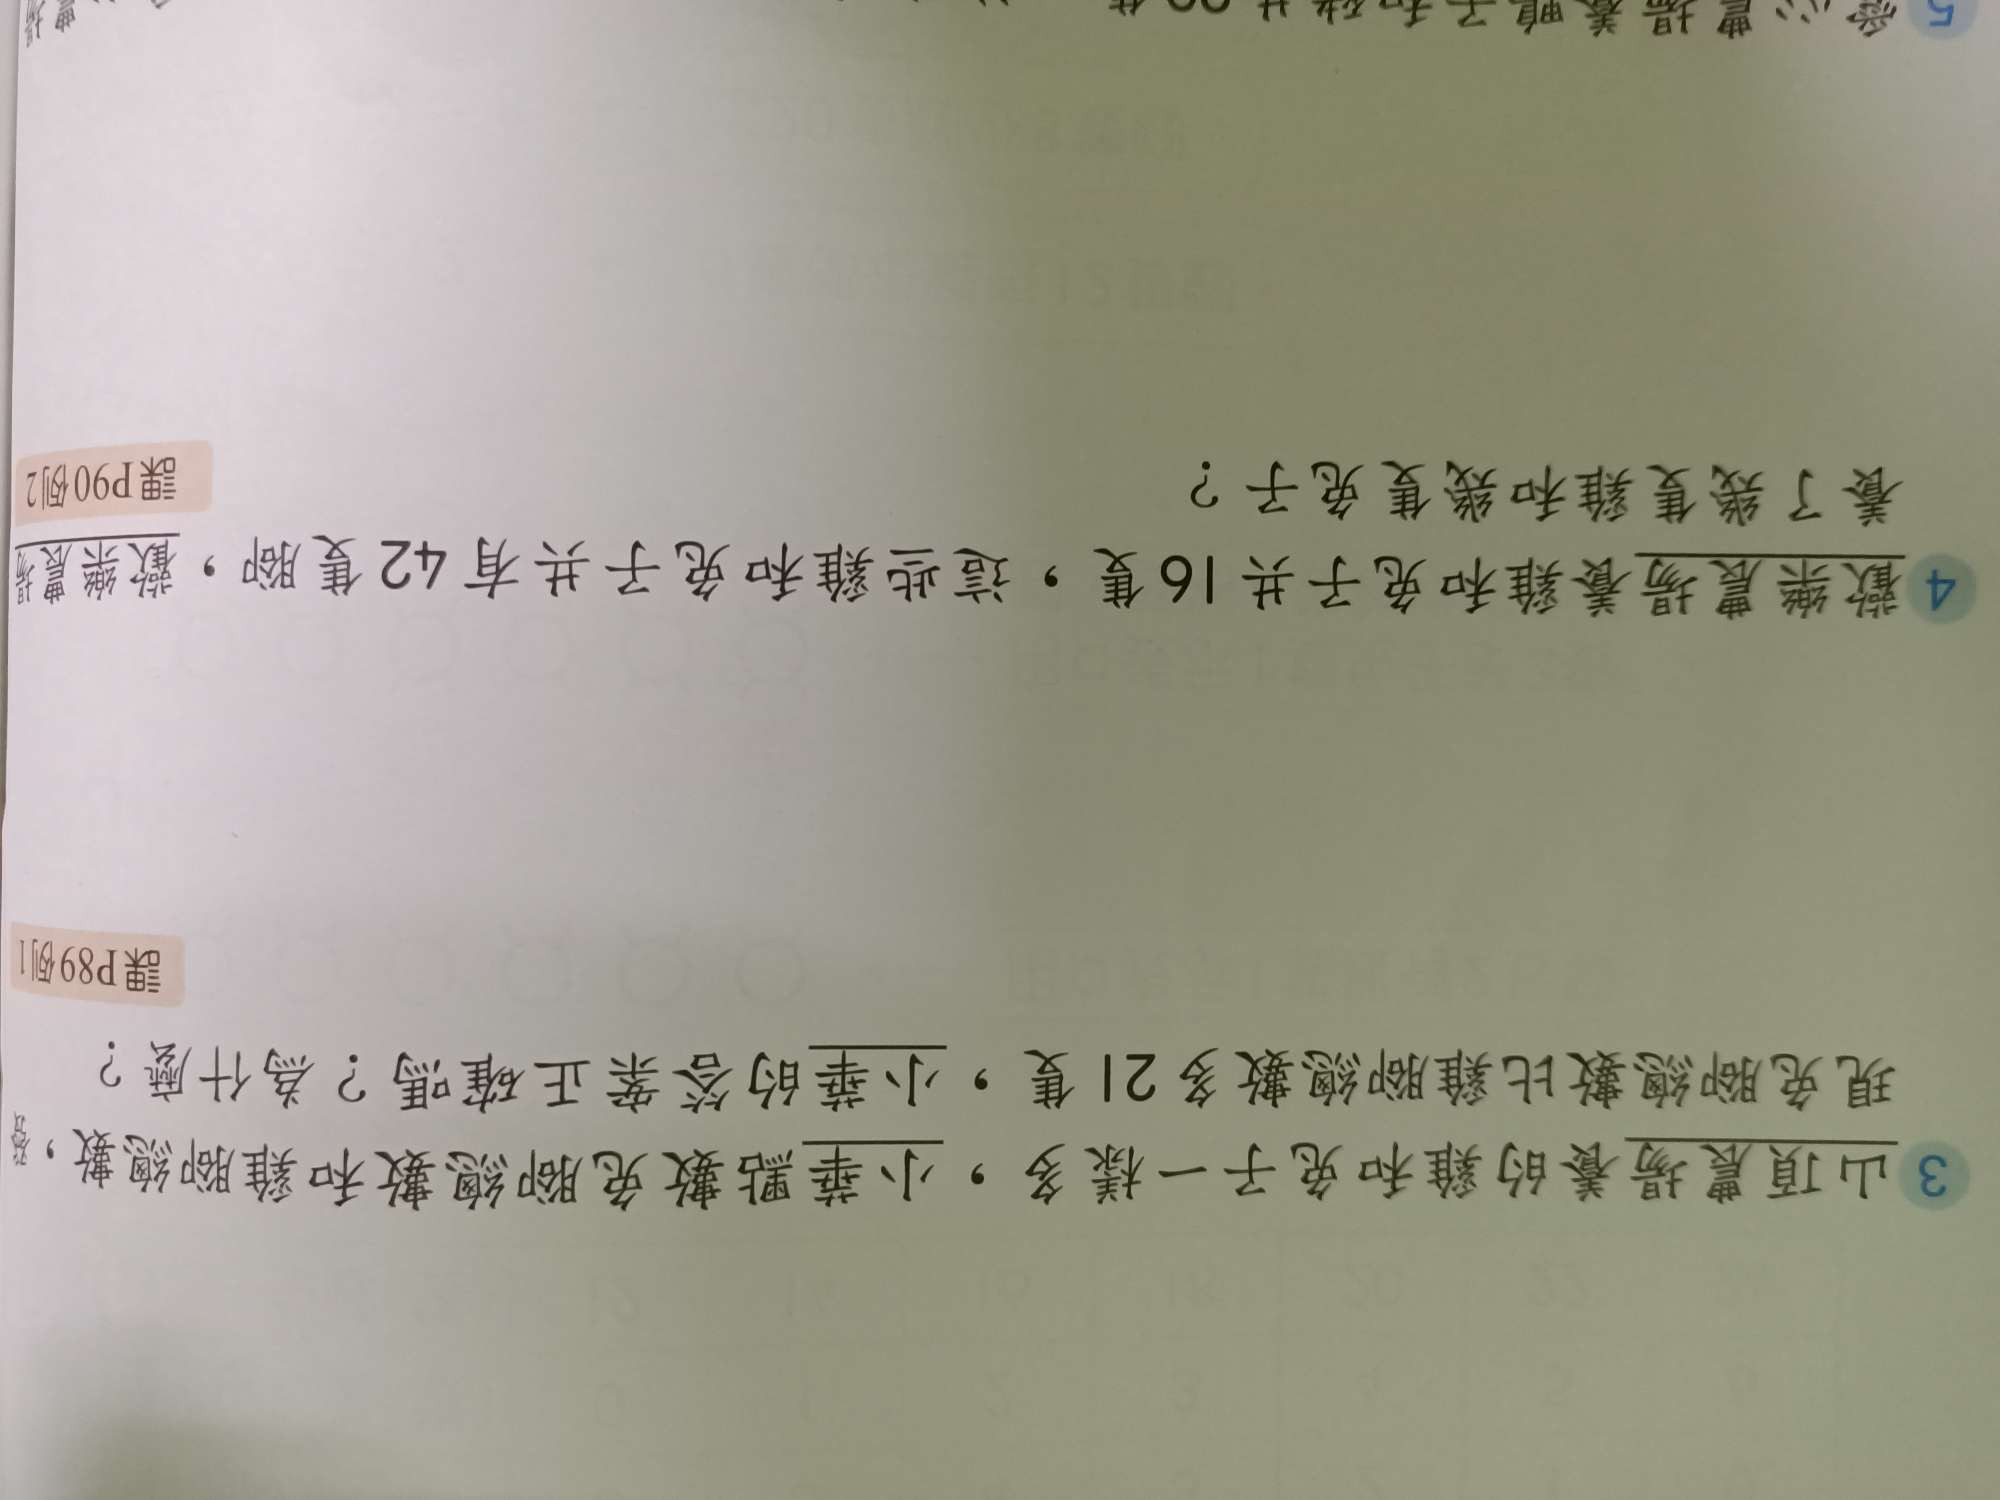 3 山頂農場養的雞和兔子一樣多，小華點數兔腳總數和雞腳總數，發
現兔腳總數比雞腳總數多21隻，小華的答案正確嗎？為什麼？
課P89例1
4 歡樂農場養雞和兔子共16隻，這些雞和兔子共有42隻腳，歡樂農場
養了幾隻雞和幾隻兔子？
課P90例2
5